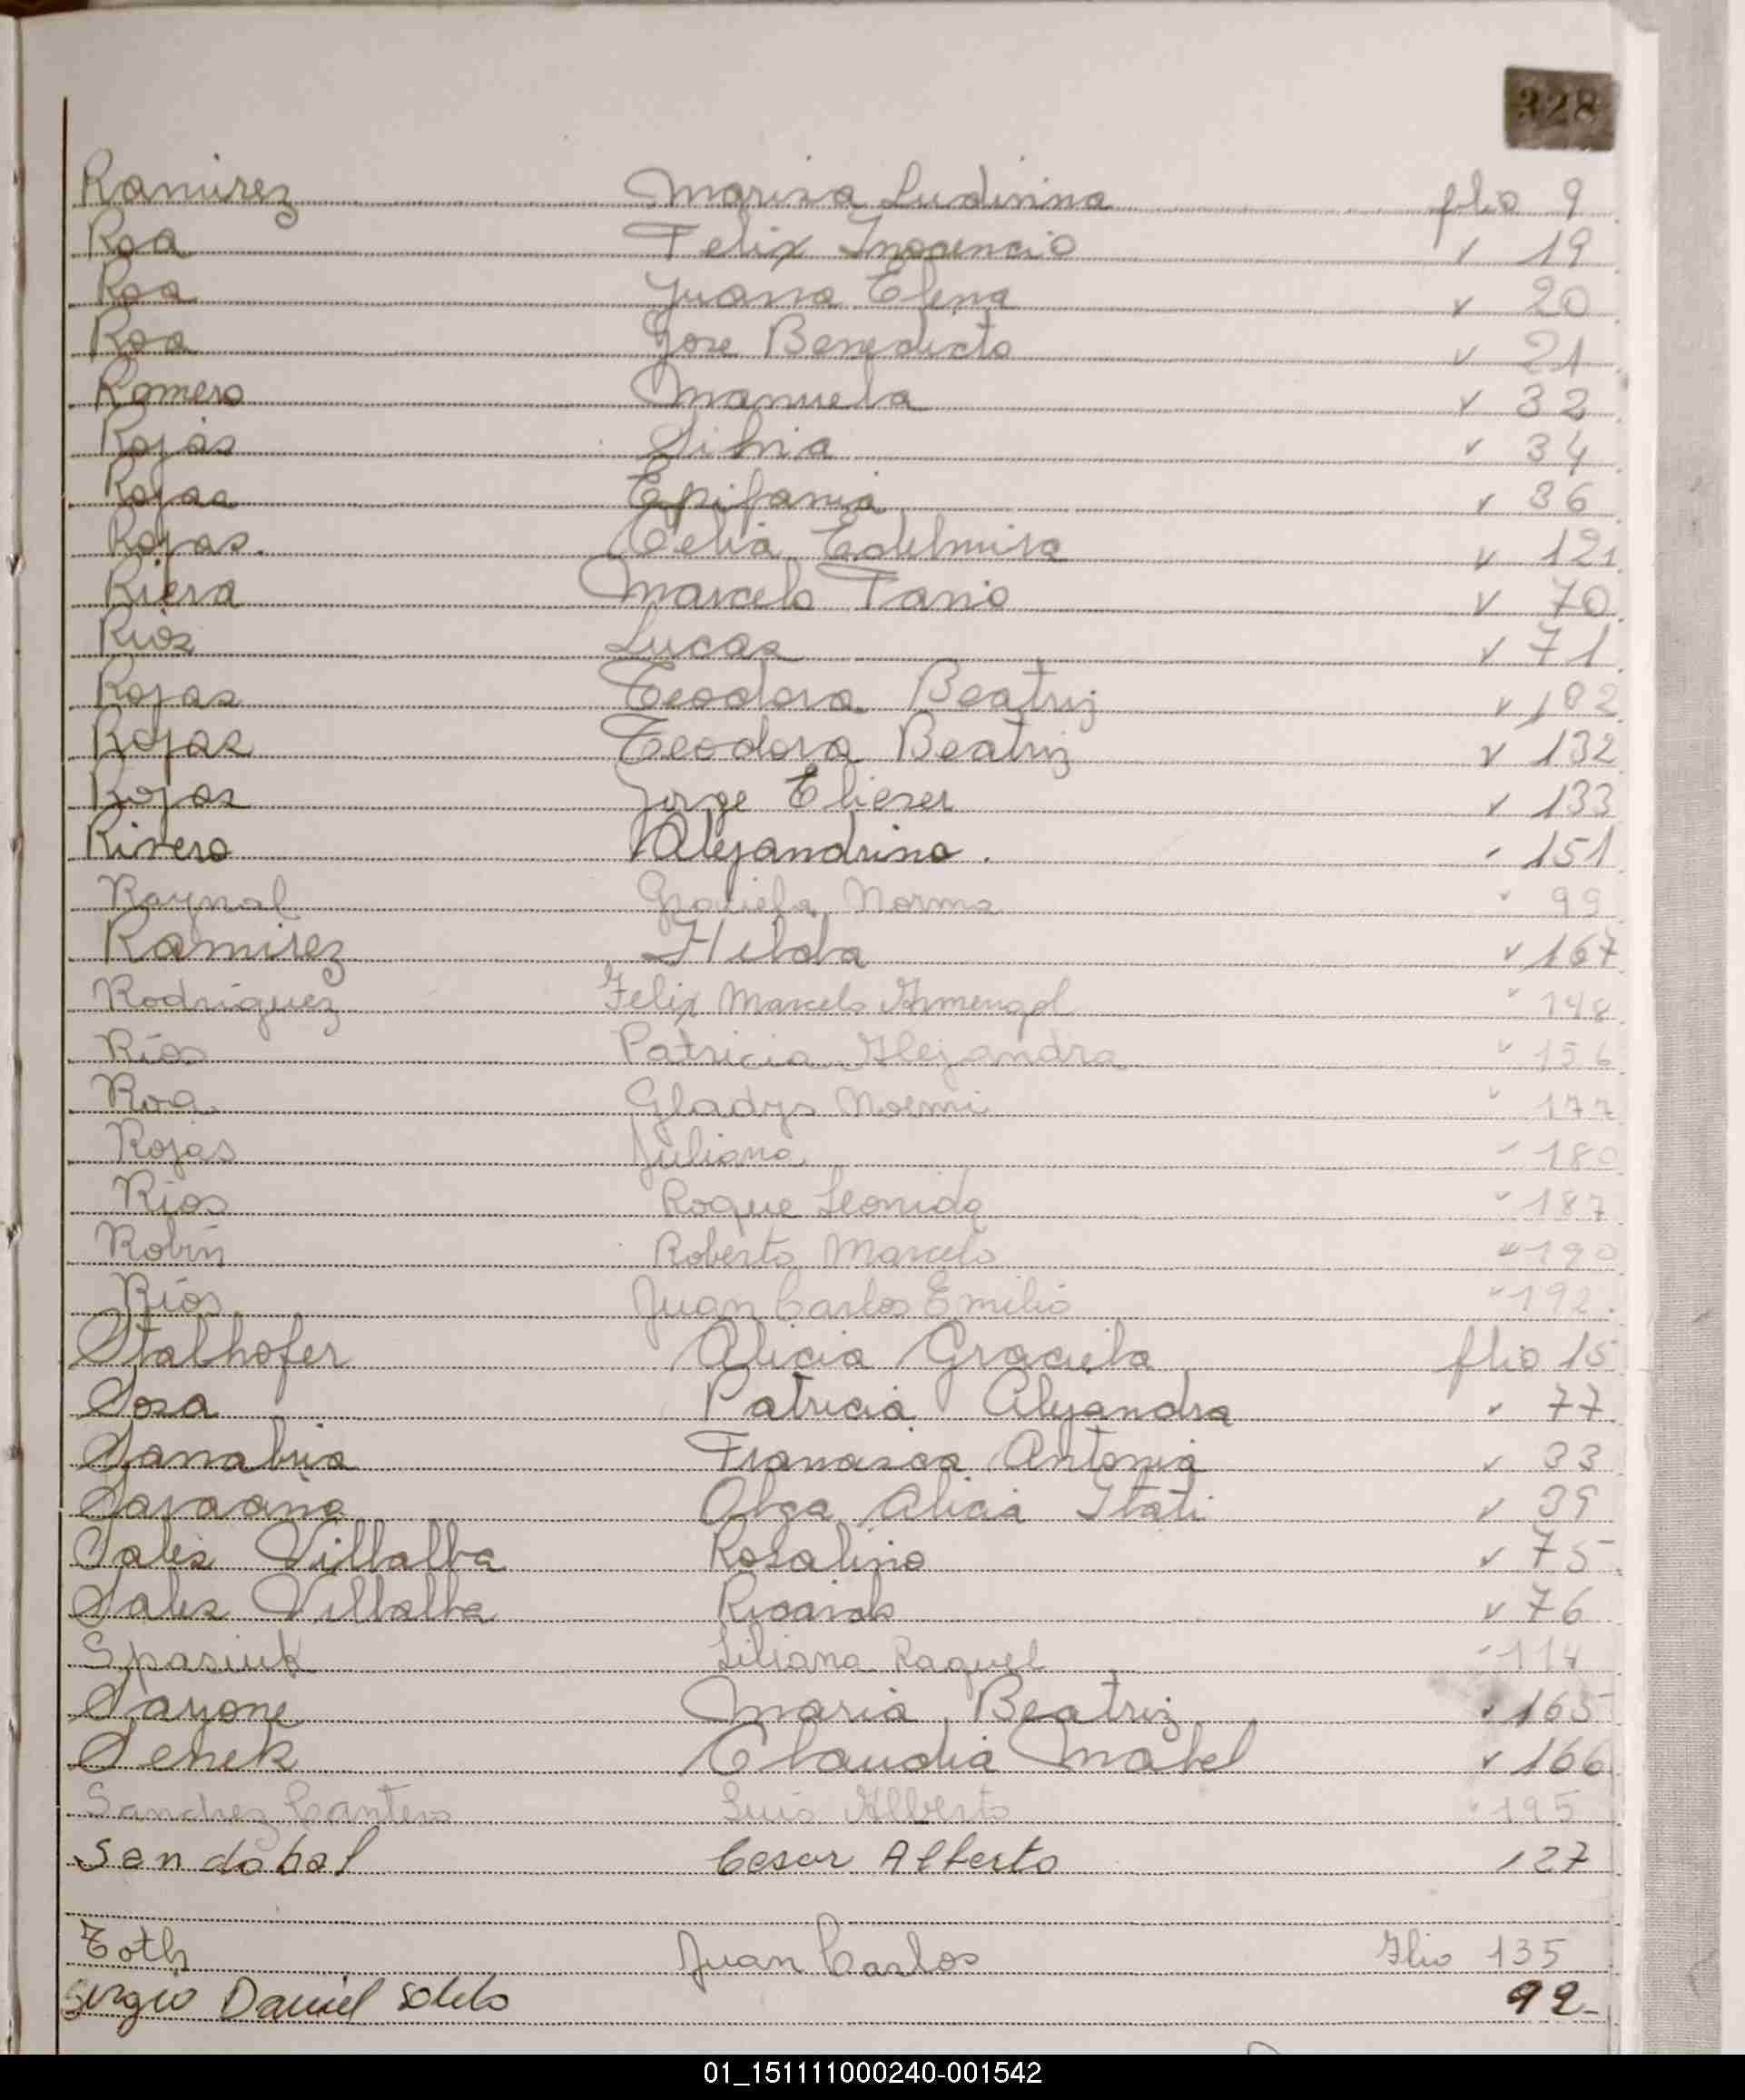 328
Ramirez Marisa Ludivina flio 9
Roa Felix Inocencio v 19
Roa Juana Elena v 20
Roa Jose Benedicto v 21
Romero Manuela v 32
Rojas Silvia v 34
Rojas Epifania v 36
Rojas. Celia Edelmira v 121
Riera Marcelo Fabio v 70
Rios Lucas v 71
Rojas Teodora Beatriz v 182
Rojas Teodora Beatriz v 132
Rojas Jorge Elieser v 133
Rivero Alejandrino. 151
Raynal Graciela Norma 99
Ramirez Hilda v 167
Rodriguez Felix Marcelo Armengol 148
Ríos Patricia Alejandra v 156
Roa Gladys Noemi 177
Rojas Juliana 180
Rios Roque Leonida 187
Robin Roberto Marcelo 190
Ríos Juan Carlos Emilio 192.
Stalhofer Alicia Graciela flio 15
Sosa Patricia Alejandra v 77
Sanabria Francisca Antonia v 33
Olga Alicia Itati v 39
Sales Villalba Rosalino v 75
Sales Villalba Ricardo v 76
Spasiuk Liliana Raquel 114
Sayone Maria Beatriz v 165
Senek Claudia Mabel v 166
Sanchez Cantero Luis Alberto 195
Sendobal Cesar Alberto 127
Toth Juan Carlos Flio 135
Sergio Daniel Sotelo 92-
01_151111000240-001542